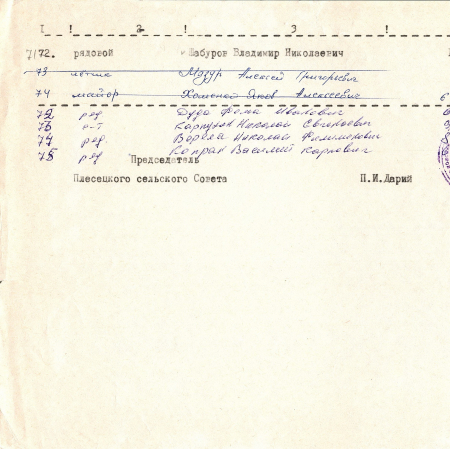 I ! ! 2 ! 3 !
7172. рядовой Шабуров Владимир Николаевич
73 летчик Мазур Алексей Григорьевич
74 майор Хоменко Яков Алексеевич
72 ряд Дуда Фома Иванович
73 р-т Карпулк Николай Евгенович
74 ряд. Ворона Николай Филимонович
75 ряд Капран Василий Карпович
Председатель
Плесецкого сельского Совета П.И.Дарий